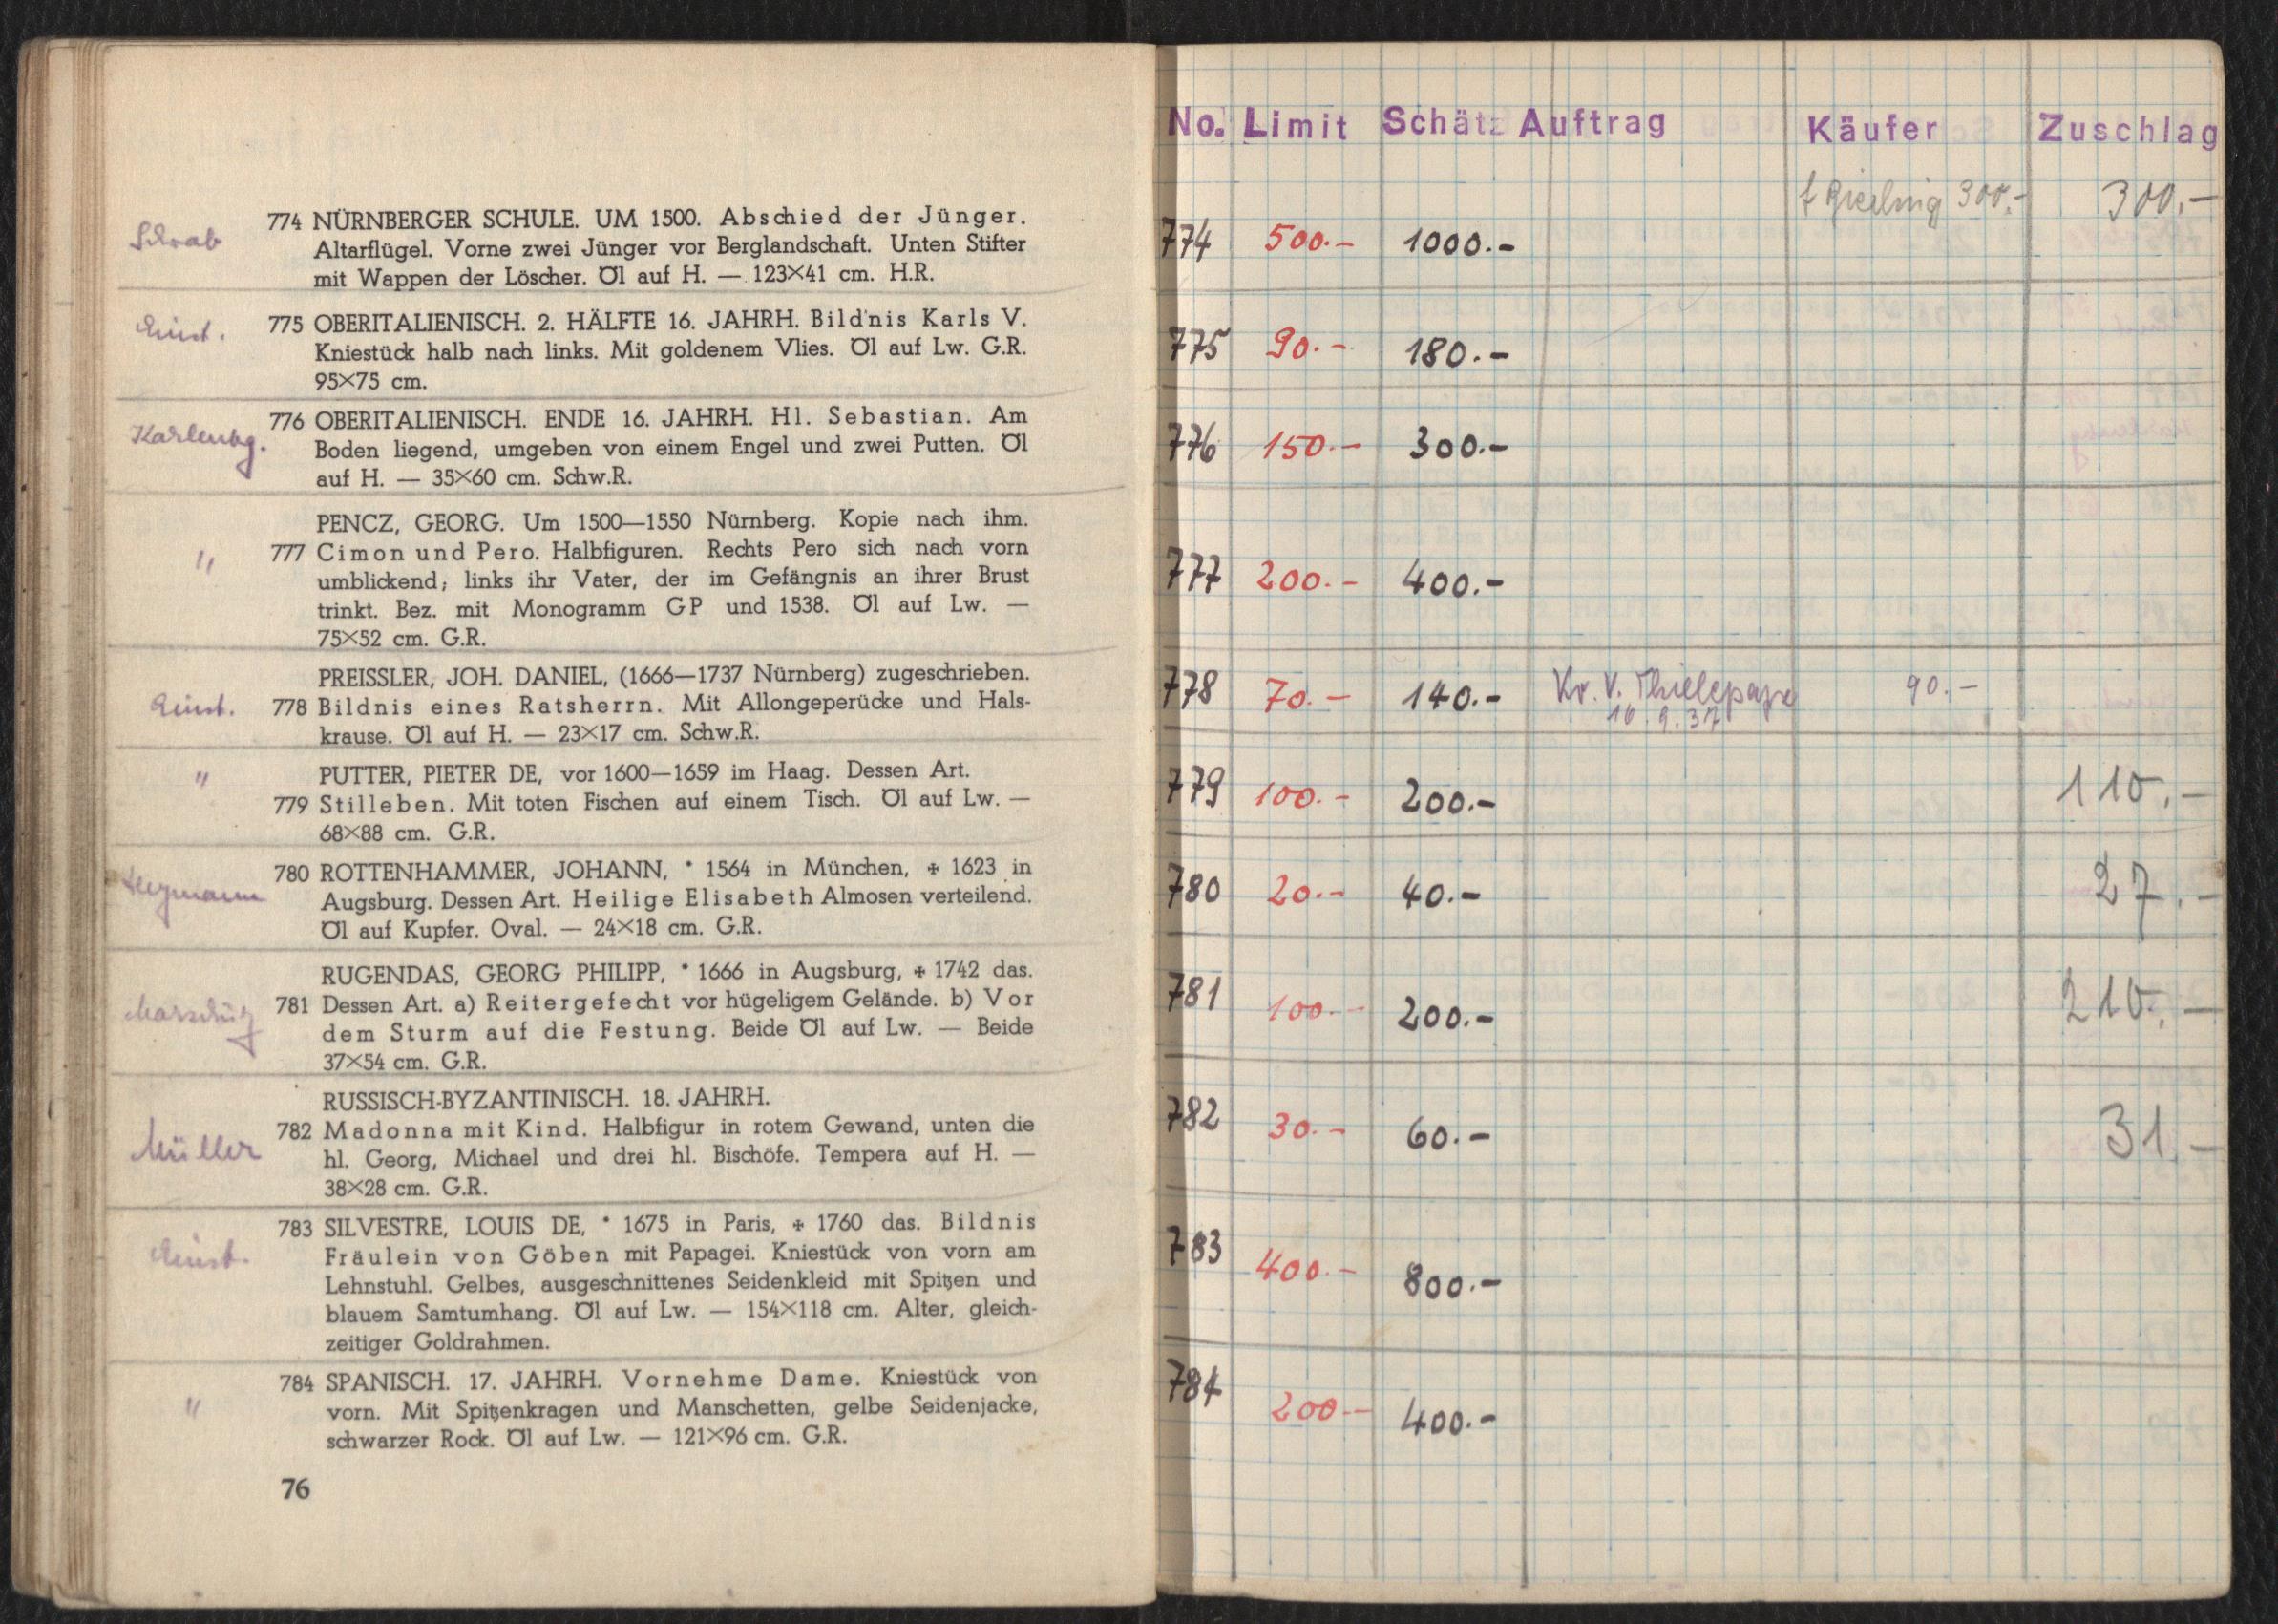 774 NÜRNBERGER SCHULE. UM 1500. Abschied der Jünger.
Altarflügel. Vorne zwei Jünger vor Berglandschaft. Unten Stifter
mit Wappen der Löscher. Öl auf H. — 123×41 cm. H.R.
775 OBERITALIENISCH. 2. HÄLFTE 16. JAHRH. Bildnis Karls V.
Kniestück halb nach links. Mit goldenem Vlies. Öl auf Lw. G.R.
95×75 cm.
776 OBERITALIENISCH. ENDE 16. JAHRH. Hl. Sebastian. Am
Boden liegend, umgeben von einem Engel und zwei Putten. Öl
auf H. — 35×60 cm. Schw.R.
"
PENCZ, GEORG. Um 1500—1550 Nürnberg. Kopie nach ihm.
777 Cimon und Pero. Halbfiguren. Rechts Pero sich nach vorn
umblickend; links ihr Vater, der im Gefängnis an ihrer Brust
trinkt. Bez. mit Monogramm GP und 1538. Öl auf Lw. —
75×52 cm. G.R.
PREISSLER, JOH. DANIEL, (1666—1737 Nürnberg) zugeschrieben.
778 Bildnis eines Ratsherrn. Mit Allongeperücke und Hals-
krause. Öl auf H. — 23×17 cm. Schw.R.
"
PUTTER, PIETER DE, vor 1600—1659 im Haag. Dessen Art.
779 Stilleben. Mit toten Fischen auf einem Tisch. Öl auf Lw. —
68×88 cm. G.R.
780 ROTTENHAMMER, JOHANN, * 1564 in München, ✠ 1623 in
Augsburg. Dessen Art. Heilige Elisabeth Almosen verteilend.
Öl auf Kupfer. Oval. — 24×18 cm. G.R.
RUGENDAS, GEORG PHILIPP, * 1666 in Augsburg, ✠ 1742 das.
781 Dessen Art. a) Reitergefecht vor hügeligem Gelände. b) Vor
dem Sturm auf die Festung. Beide Öl auf Lw. — Beide
37×54 cm. G.R.
Müller
RUSSISCH-BYZANTINISCH. 18. JAHRH.
782 Madonna mit Kind. Halbfigur in rotem Gewand, unten die
hl. Georg, Michael und drei hl. Bischöfe. Tempera auf H. —
38×28 cm. G.R.
783 SILVESTRE, LOUIS DE, * 1675 in Paris, ✠ 1760 das. Bildnis
Fräulein von Göben mit Papagei. Kniestück von vorn am
Lehnstuhl. Gelbes, ausgeschnittenes Seidenkleid mit Spitzen und
blauem Samtumhang. Öl auf Lw. — 154×118 cm. Alter, gleich-
zeitiger Goldrahmen.
"
784 SPANISCH. 17. JAHRH. Vornehme Dame. Kniestück von
vorn. Mit Spitzenkragen und Manschetten, gelbe Seidenjacke,
schwarzer Rock. Öl auf Lw. — 121×96 cm. G.R.
76
No. Limit Schätz Auftrag Käufer Zuschlag
774 500.- 1000.- 300.- 300.-
775 90.- 180.-
776 150.- 300.-
777 200.- 400.-
778 70.- 140.- 90.-
779 100.- 200.- 110.-
780 20.- 40.- 27.-
781 100.- 200.- 210.-
782 30.- 60.- 31.-
783 400.- 800.-
784 200.- 400.-